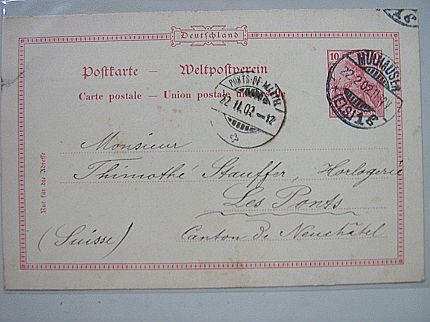 Deutschland
Postkarte — Weltpostverein
Carte postale — Union postale
PONTS-DE-MARTEL
22. II. 02. — 12
MÜLHAUSEN
(ELS) 1
10
Nur für die Adresse
Monsieur
Thimothé Stauffer, Horlogerie
Les Ponts
(Suisse) Canton de Neuchâtel